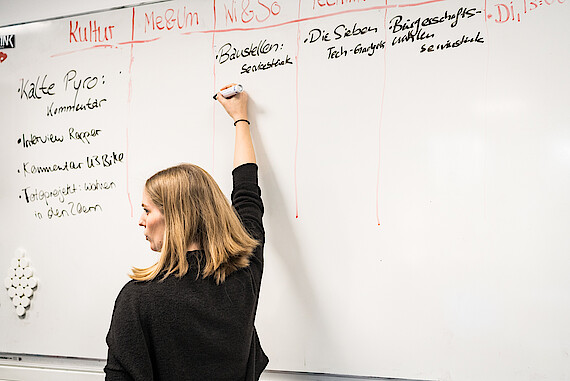 Kultur
Me&Um
Wi&So
Di, 13:00
• Kalte Pyro:
Kommentar
• Interview Rapper
• Kommentar U3 Bike
• Totoprojekt: wohnen
in den 20ern
• Baustellen:
servicestück
• Die Sieben
Tech-Gadgets
• Bürgerschafts-
wahlen
servicestück